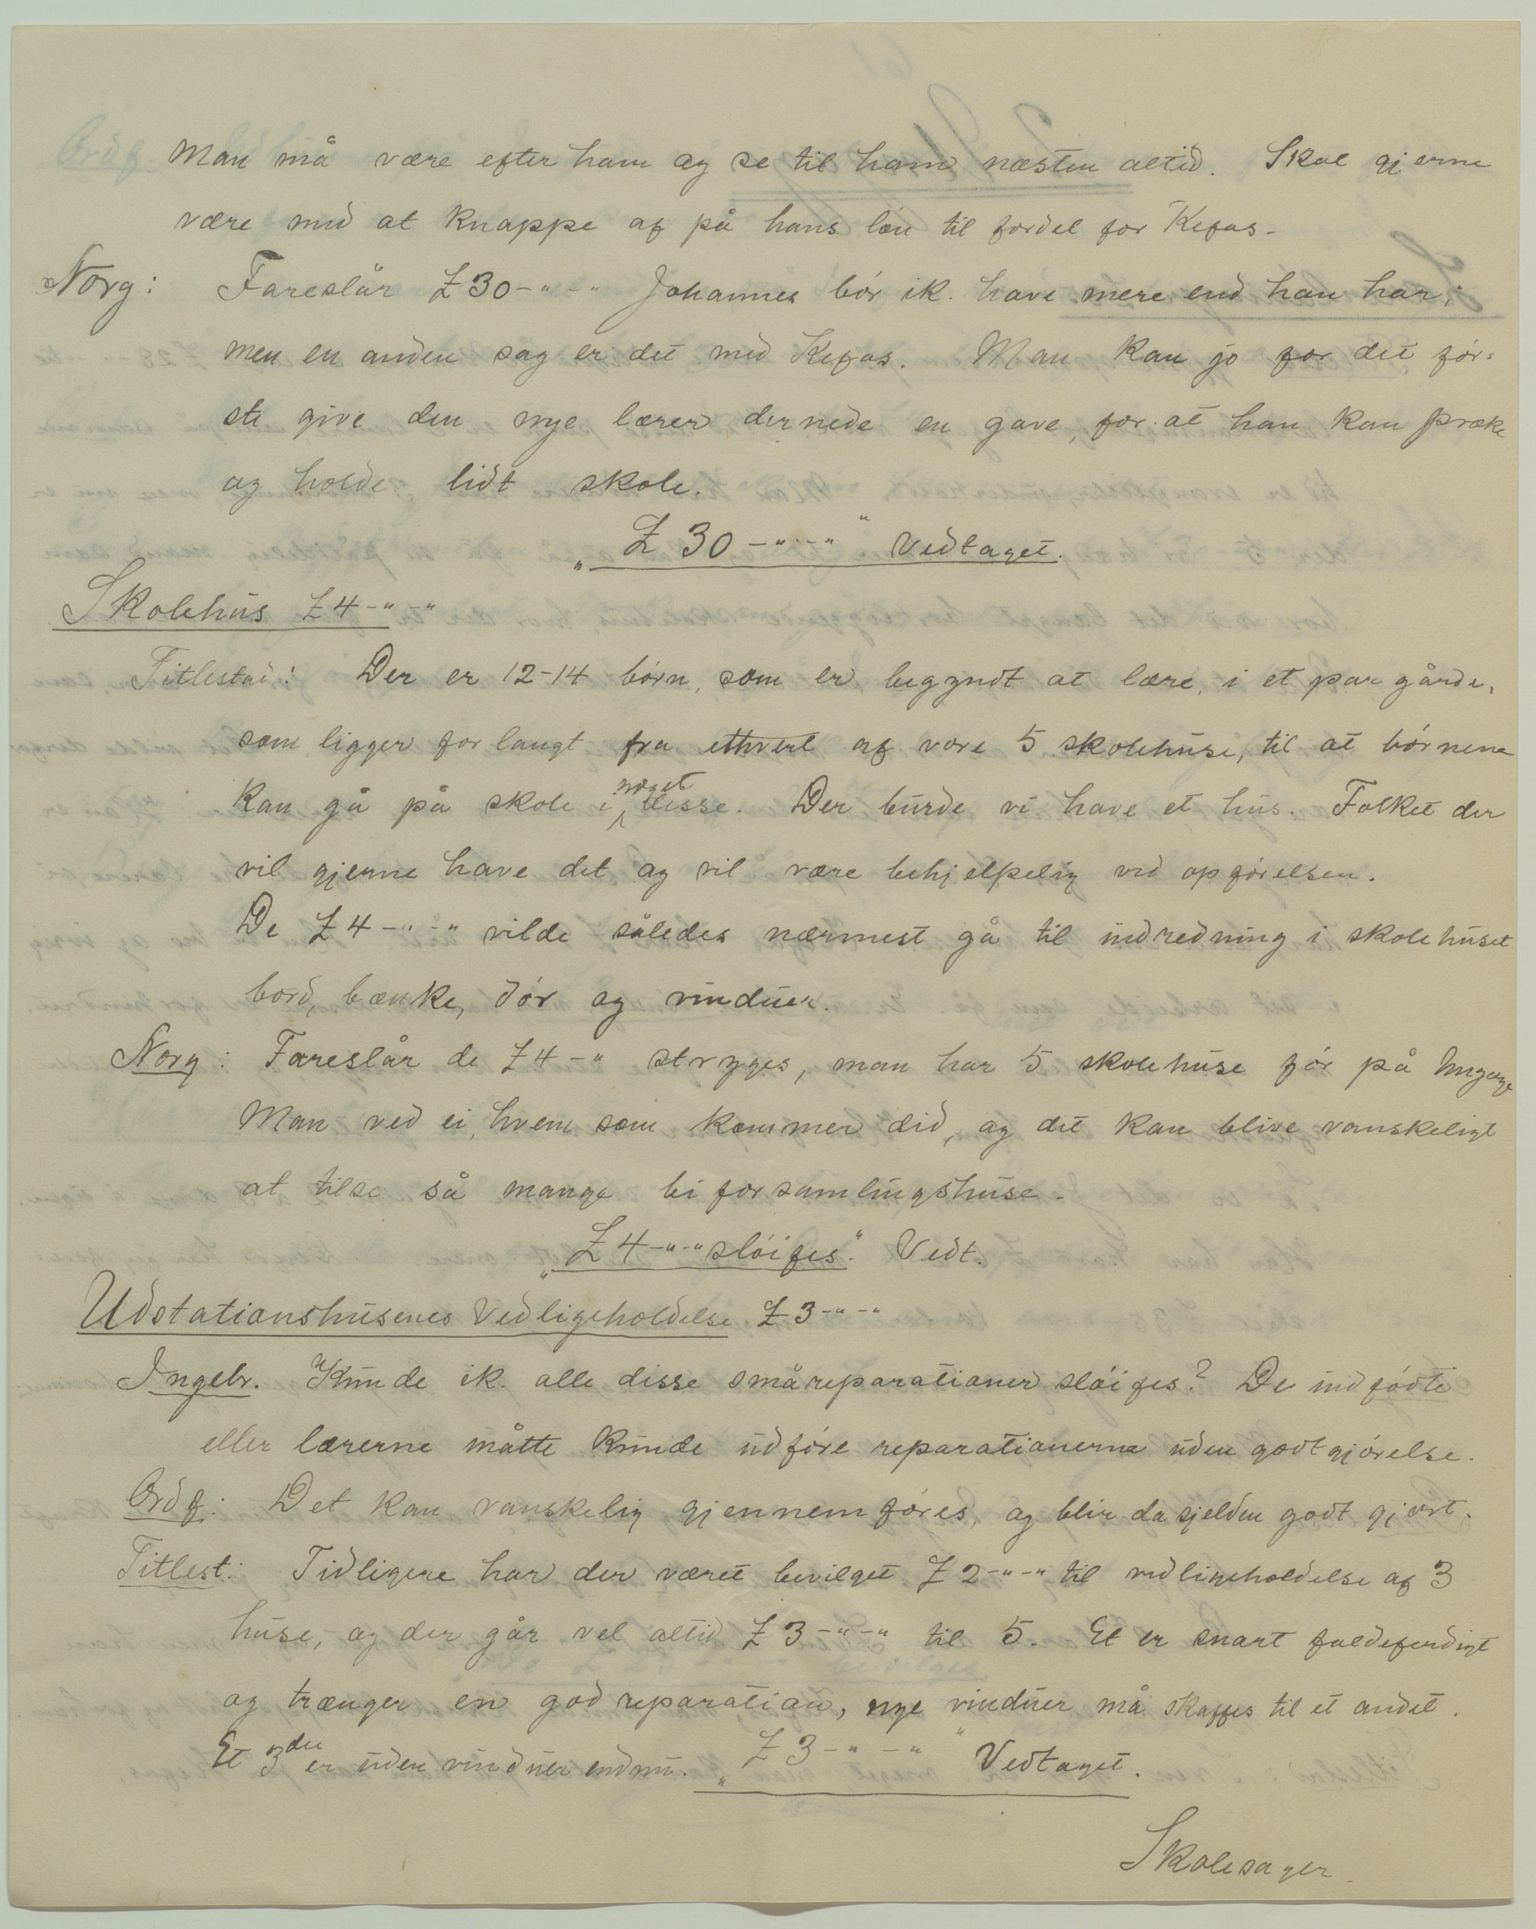 Man må være efter ham og se til ham næsten altid. Skal gjerne
være med at knappe af på hans løn til fordel for Kefas.
Norg: Foreslår £ 30-"-" Johannes bør ik. have mere end han har;
men en anden sag er det med Kefas. Man kan jo for det før=
ste give den nye lærer dernede en gave, for at han kan præke
og holde lidt skole.
"£ 30-"-"" Vedtaget.
Skolehus £4-"-"
Titlestad: Der er 12-14 børn, som er begyndt at lære, i et par gårde,
som ligger for langt fra ethvert af vore 5 skolehuse, til at børnene
noget
kan gå på skole i disse. Der burde vi have et hus. Folket der
vil gjerne have det og vil være behjelpelig ved opførelsen.
De £4-"-" vilde således nærmest gå til indredning i skolehuset
bord, bænke, dør og vinduer.
Norg: Foreslår de £4-" stryges, man har 5 skolehuse før på
Man ved ei, hvem som kommer did, og det kan blive vanskeligt
at tilse så mange bi forsamlingshuse.
"£4-"-" sløifes". Vedt.
Udstationshusenes Vedligeholdelse £3-"-"
Ingebr. Kunde ik. alle disse småreparationer sløifes? De indfødte
eller lærerne måtte kunde udføre reparationerne uden godtgjørelse.
Ordf: Det kan vanskelig gjennemføres, og blir da sjelden godt gjort.
Titlest: Tidligere har der været bevilget £2-"-" til vedligeholdelse af 3
huse, og der går vel altid £3-"-" til 5. Et er snart faldefærdigt
og trænger en god reparation, nye vinduer må skaffes til et andet.
Et 3die er uden vinduer endnu. "£3-"-"" Vedtaget.
Skolesager.